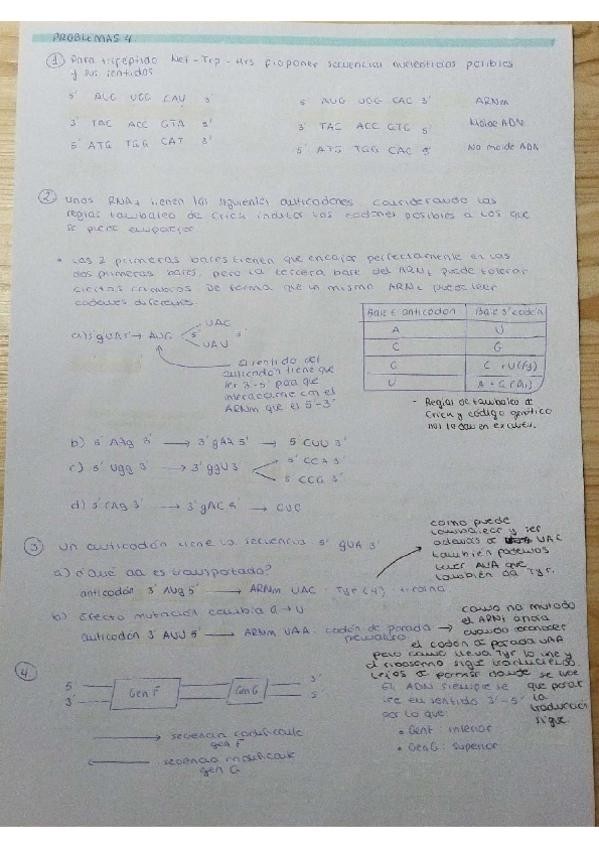 PROBLEMAS 4
① Para tripéptido Met - Trp - His proponer secuencias nucleótidos posibles
y sus sentidos
5' AUG UGG CAU 3'
3' TAC ACC GTA 5'
5' ATG TGG CAT 3'
5' AUG UGG CAC 3' ARNm
3' TAC ACC GTG 5' Molde ADN
5' ATG TGG CAC 3' No molde ADN
② Unos RNAt tienen los siguientes anticodones. Considerando las
reglas tambaleo de Crick indicar los codones posibles a los que
se puede emparejar
• Las 2 primeras bases tienen que encajar perfectamente en las
dos primeras bases, pero la tercera base del ARNt puede tolerar
ciertos cambios. De forma que un mismo ARNt puede leer
codones diferentes
a) 5' gUA 3' → AUG
UAC
UAU
El sentido del
anticodón tiene que
ser 3'-5' para que
interaccione con el
ARNm que es 5'-3'
Base 5' anticodón Base 3' codón
A U
C G
G C + U
U A + G
- Reglas de tambaleo de
Crick y código genético
nos lo dan en examen.
b) 5' AAg 3' → 3' gAA 5' → 5' CUU 3'
c) 5' Ugg 3' → 3' ggU 3'
5' CCA 3'
5' CCG 3'
d) 5' CAg 3' → 3' gAC 5' → CUG
③ Un anticodón tiene la secuencia 5' gUA 3'
a) ¿Qué aa es transportado?
anticodón 3' AUg 5' → ARNm UAC - Tyr (Y) - tirosina
como puede
tambalear y ser
además de UAC
también podemos
leer
también da Tyr.
b) Efecto mutación cambia G → U
anticodón 3' AUU 5' → ARNm UAA - codón de parada
prematuro
→ como ha mutado
el ARNt ahora
cuando reconocer
el codón de parada UAA
pero como lleva Tyr lo une y
el ribosoma sigue traduciendo
lejos de parar donde se
que parar
la
traducción
sigue
④
5' 3'
3' 5'
Gen F
Gen G
→ secuencia codificante
gen F
← secuencia codificante
gen G
El ADN siempre se
lee en sentido 3'-5'
por lo que:
• Gen F: inferior
• Gen G: superior